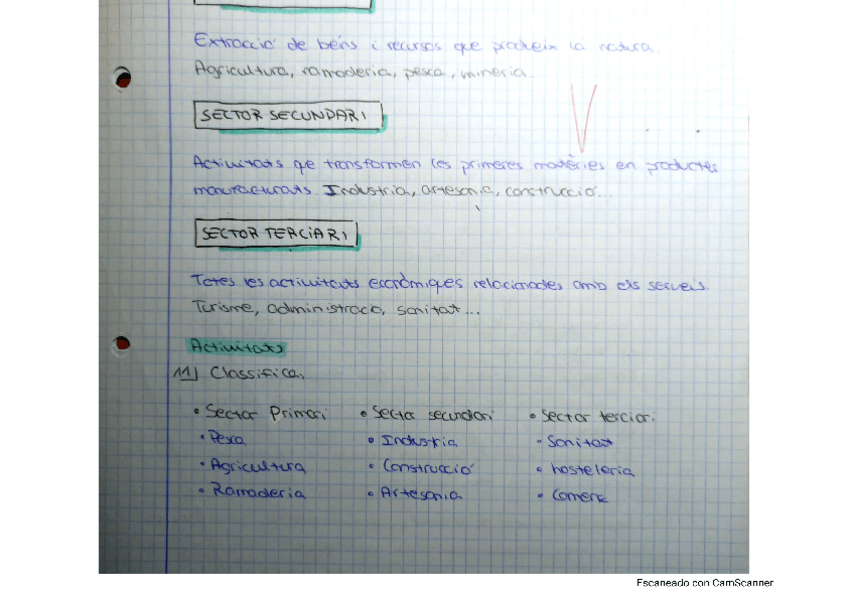 Extracció de béns i recursos que produeix la natura.
Agricultura, ramaderia, pesca, mineria.
SECTOR SECUNDARI
Activitats que transformen les primeres matèries en productes
manufacturats. Industria, artesania, construcció...
SECTOR TERCIARI
Totes les activitats econòmiques relacionades amb els serveis.
Turisme, administració, sanitat...
Activitats
11) Classifica.
• Sector Primari • Sector secundari • Sector terciari.
• Pesca • Industria • Sanitat
• Agricultura • Construcció • hosteleria
• Ramaderia • Artesania • Comerç
Escaneado con CamScanner